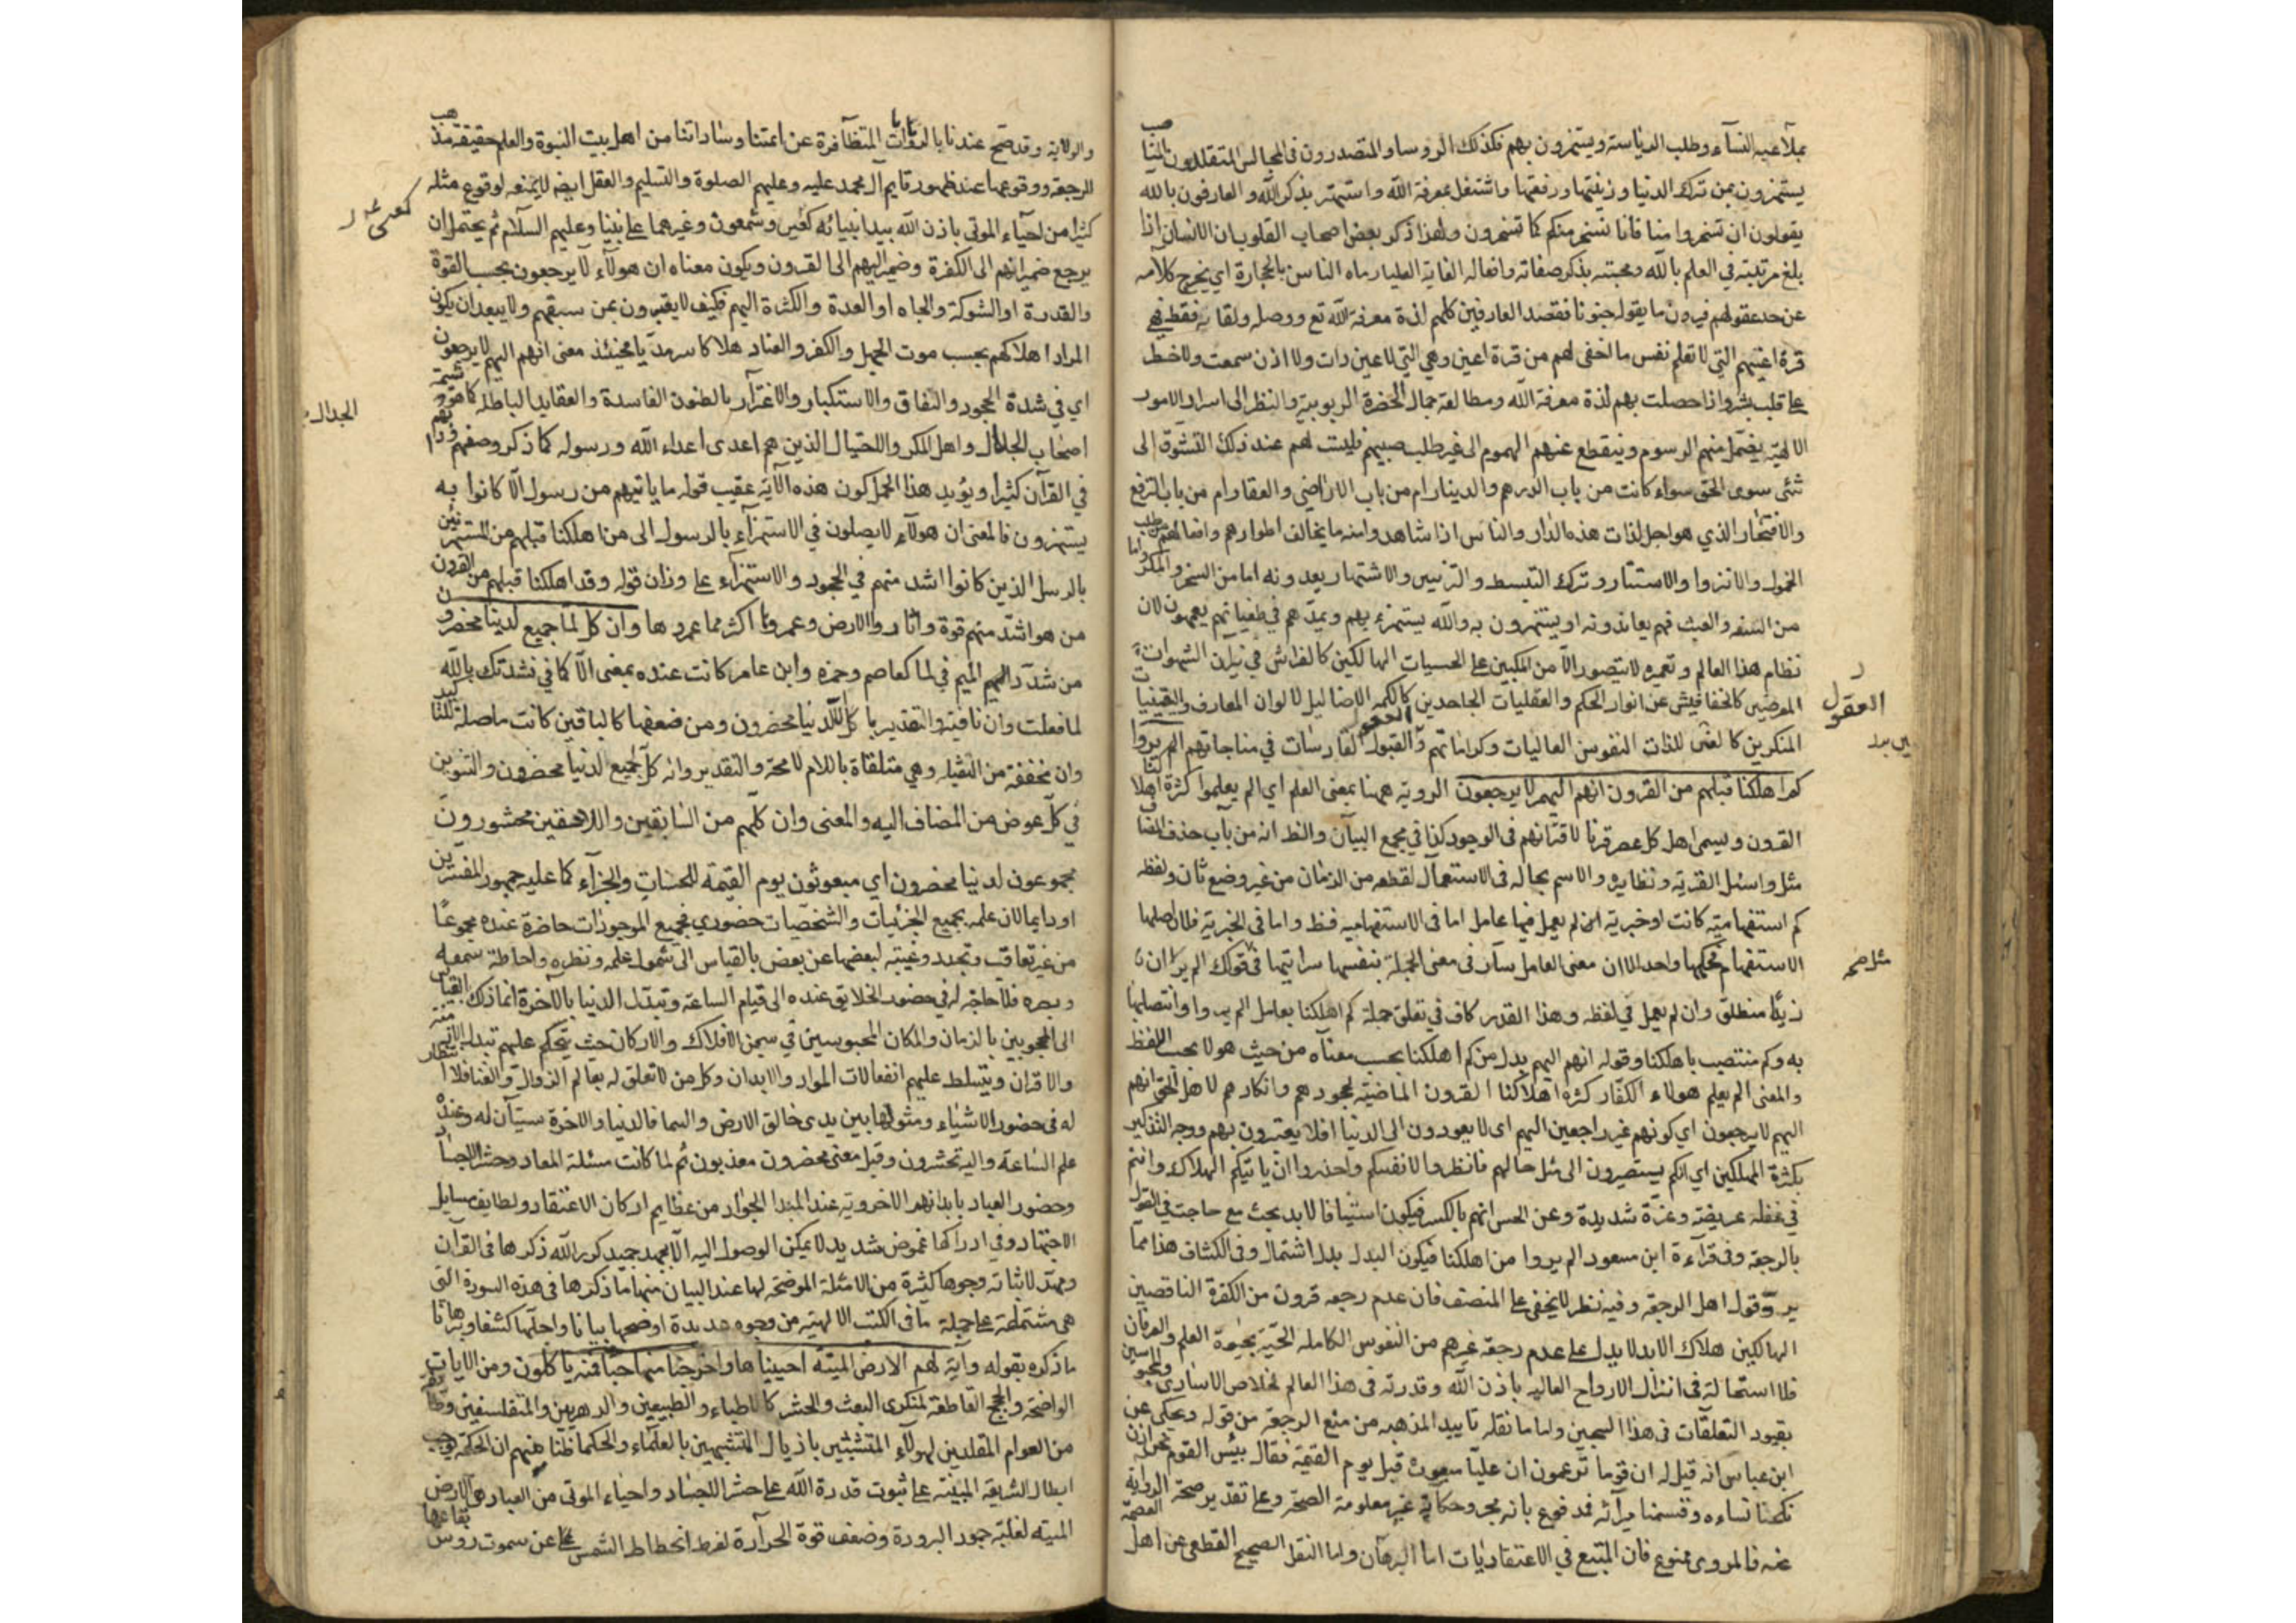 بملاعبه النسآء وطلب الرياسته ويستهزون بهم فكذلك الروسا والمتصدرون فى المجالس المتقلدون
يستهزون بمن ترك الدنيا وزينتها ورفعتها واشتغل بمعرفة الله واستهتر بذكر الله والعارفون بالله
يقولون ان تسخروا منا فانا نسخر منكم كما تسخرون ولهذا ذكر بعض اصحاب القلوب ان الانسان اذا
بلغ مرتبته في العلم بالله ومحبته بذكر صفاته وافعاله الغاية العليا رماه الناس بالحجارة اي يخرج كلامه
عن حد عقولهم فيرون ما يقوله جنونا فقصد العارفين كلهم لذة معرفة الله تع ووصله ولقائه فقط فهي
قرة اعينهم التي لا تعلم نفس ما اخفى لهم من قرة اعين وهي التي لا عين رات ولا اذن سمعت ولا خطر
على قلب بشر واذا حصلت بهم لذة معرفة الله ومطالعة جمال الحضرة الربوبية والنظر الى اسرار الامور
الالهية يضمحل منهم الرسوم وينقطع عنهم الهموم الى غير طلب صبيهم فليست لهم عند ذلك التشوق الى
شئ سوى الحق سواء كانت من باب الدرهم والدينار ام من باب الاراضي والعقار ام من باب الترفع
والافتخار الذي هو اجل لذات هذه الدار والناس اذا شاهدوا منه ما يخالف اطوارهم وافعالهم من طلب
الخمول والانزوا والاستتار وترك التبسط والتزيين والاشتهار يعدونه اما من السخر والمكر واما
من السفه والعبث فهم يعاندونه او يستهزون به والله يستهزء بهم ويمدهم في طغيانهم يعمهون لان
نظام هذا العالم وتعميره لا يتصور الا من المكبين على الحسيات الهالكين كالفراش في نيران الشهوات
المعرضين كالخفافيش عن انوار الحكم والعقليات الجاحدين كالكمه الاضاليل لالوان المعارف واليقينيات
المنكرين كالعنى للذات النفوس العاليات وكراماتهم والعقول القادسات في مناجاتهم الم يروا
كم اهلكنا قبلهم من القرون انهم اليهم لا يرجعون الروية ههنا بمعنى العلم اي الم يعلموا كثرة اهلاكنا
القرون ويسمى اهل كل عصر قرنا لاقترانهم فى الوجود كذا في مجمع البيان والظ انه من باب حذف المضاف
مثل واسئل القرية ونظايره والاسم بحاله فى الاستعمال لقطعه من الزمان من غير وضع ثان ولفظه
كم استفهامية كانت او خبرية لم يعمل فيها عامل اما فى الاستفهاميه فظ واما فى الخبرية فلان اصلها
الاستفهام فحكمها واحد الا ان معنى العامل سار فى معنى الجملة بنفسها سرايتها في قولك الم ير ان
زيدا منطلق وان لم يعمل في لفظه وهذا القدر كاف في تعلق جملة كم اهلكنا بعامل الم يروا وانتصابها
به وكم منتصب باهلكنا وقوله انهم اليهم بدل من كم اهلكنا بحسب معناه من حيث هو لا بحسب اللفظ
والمعنى الم يعلم هولاء الكفار كثرة اهلاكنا القرون الماضية بجحودهم وانكارهم لاهل الحق انهم
اليهم لا يرجعون اي كونهم غير راجعين اليهم اى لا يعودون الى الدنيا افلا يعتبرون بهم ووجه التذكير
بكثرة المهلكين اي انكم يستصيرون الى مثل حالهم فانظروا لانفسكم واحذروا ان ياتيكم الهلاك وانتم
في غفلة عريضة وغرة شديدة وعن الحسن انهم بالكسر فيكون استينافا لابد بحث مع صاحب في القول
بالرجعة وفى قرآءة ابن مسعود الم يروا من اهلكنا فيكون البدل بدل اشتمال وفى الكشاف هذا مما
يرد قول اهل الرجعة وفيه نظر لا يخفى على المنصف فان عدم رجعة قرون من الكفرة الناقصين
الهالكين هلاك الابد لا يدل على عدم رجعة غيرهم من النفوس الكاملة الحية بحيوة العلم والعرفان
فلا استحالة فى انزال الارواح العاليه باذن الله وقدرته فى هذا العالم لخلاص الاسارى والمحبوسين
بقيود التعلقات فى هذا السجين واما ما نقله تاييد المذهبه من منع الرجعة من قوله ويحكى عن
ابن عباس انه قيل له ان قوما تزعمون ان عليا مبعوث قبل يوم القيمة فقال بئس القوم نحن اذن
نكحنا نساءه وقسمنا ميراثه فمدفوع بانه مجرد حكاية غير معلومة الصحة وعلى تقدير صحة الرواية
عنه فالمروى ممنوع فان المتبع في الاعتقاديات اما البرهان واما النقل الصحيح القطعى عن اهل العصمة
العقول
مثل صح
والولاية وقد صح عندنا بالروايات المتظآفرة عن ائمتنا وساداتنا من اهل بيت النبوة والعلم حقيقة مذهب
الرجعة ووقوعها عند ظهور قايم آل محمد عليه وعليهم الصلوة والتسليم والعقل ايضه لا يمنعه لوقوع مثله
كثيرا من احيآء الموتى باذن الله بيد انبيائه كعيسى وشمعون وغيرهما على نبينا وعليهم السلام ثم يحتمل ان
يرجع ضمير انهم الى الكفرة وضمير اليهم الى القرون ويكون معناه ان هولاء لا يرجعون بحسب القوة
والقدرة او الشوكة والجاه او العدة والكثرة اليهم فكيف لا يعتبرون بمن سبقهم ولا يبعد ان يكون
المراد اهلاكهم بحسب موت الجهل والكفر والعناد هلاكا سرمديا فحينئذ معنى انهم اليهم لا يرجعون
اي في شدة الجحود والنفاق والاستكبار والاغترار بالظنون الفاسدة والعقايد الباطلة كما هو شيمة
اصحاب الجدال واهل المكر والاحتيال الذين هم اعدى اعداء الله ورسوله كما ذكر وصفهم وذمهم
في القرآن كثيرا ويؤيد هذا الحمل كون هذه الآية عقيب قوله ما ياتيهم من رسول الا كانوا به
يستهزون فالمعنى ان هولاء لا يصلون في الاستهزآء بالرسول الى من اهلكنا قبلهم من المستهزئين
بالرسل الذين كانوا اشد منهم في الجحود والاستهزآء على وزان قوله وقد اهلكنا قبلهم من القرون
من هو اشد منهم قوة واثاروا الارض وعمروها اكثر مما عمروها وان كل لما جميع لدينا محضرون
من شدد الميم في لما كعاصم وحمزه وابن عامر كانت عنده بمعنى الا كما في نشدتك بالله
لما فعلت وان نافية والتقدير ما كل الا لدينا محضرون ومن ضعفها كالباقين كانت ما صلة للتاكيد
وان مخففة من الثقيلة وهي متلقاة باللام لا محة والتقدير وانه كل لجميع لدينا محضرون والتنوين
في كل عوض من المضاف اليه والمعنى وان كلهم من السابقين واللاحقين محشورون
مجموعون لدينا محضرون اي مبعوثون يوم القيمة للحساب والجزآء كما عليه جمهور المفسرين
او دايما لان علمه بجميع الجزئيات والشخصيات حضورى فجميع الموجودات حاضرة عنده مجموعا
من غير تعاقب وتجدد وغيبة لبعضها عن بعض بالقياس الى شمول علمه ونظره واحاطة سمعه
وبصره فلا حاجة له في حضور الخلايق عنده الى قيام الساعة وتبدل الدنيا بالآخرة انما ذلك بالقياس
الى المحجوبين بالزمان والمكان المحبوسين في سجن الافلاك والاركان حيث يتحكم عليهم تبدل الازمنة
والاقران ويتسلط عليهم انفعالات المواد والابدان وكل من لا تعلق له بعالم الزوال والفنا فلا انتظار
له فى حضور الاشياء ومثولها بين يدى خالق الارض والسما فالدنيا والاخرة سيان له وعنده
علم الساعة واليه تحشرون وقيل معنى محضرون معذبون ثم لما كانت مسئلة المعاد وحشر الاجساد
وحضور العباد بابدانهم الاخروية عند المبدا الجواد من عظايم اركان الاعتقاد ولطايف مسايل
الاجتهاد وفي ادراكها غموض شديد لا يمكن الوصول اليه الا بجهد جهيد كرر الله ذكرها فى القرآن
ومهد لاثباته وجوها كثيرة من الامثلة الموضحة لها عند البيان منها ما ذكرها فى هذه السورة التى
هى مشتملة على جملة ما فى الكتب الالهية من وجوه عديدة اوضحها بيانا واجلها كشفا وبرهانا
ما ذكره بقوله وآية لهم الارض الميتة احييناها واخرجنا منها حبا فمنه ياكلون ومن الايات
الواضحة والحجج القاطعة لمنكرى البعث والحشر كالاطباء والطبيعين والدهريين والمتفلسفين وطايفة
من العوام المقلدين لهولاء المتشبثين باذيال المتشبهين بالعلماء والحكما ظنا منهم ان الحكمة توجب
ابطال الشريعة المبنية على ثبوت قدرة الله على حشر الاجساد واحياء الموتى من العباد هو الارض
الميته لغلبة جمود البرودة وضعف قوة الحرآرة لفرط انحطاط الشمس عن سموت رؤس بقاعها
الجدال